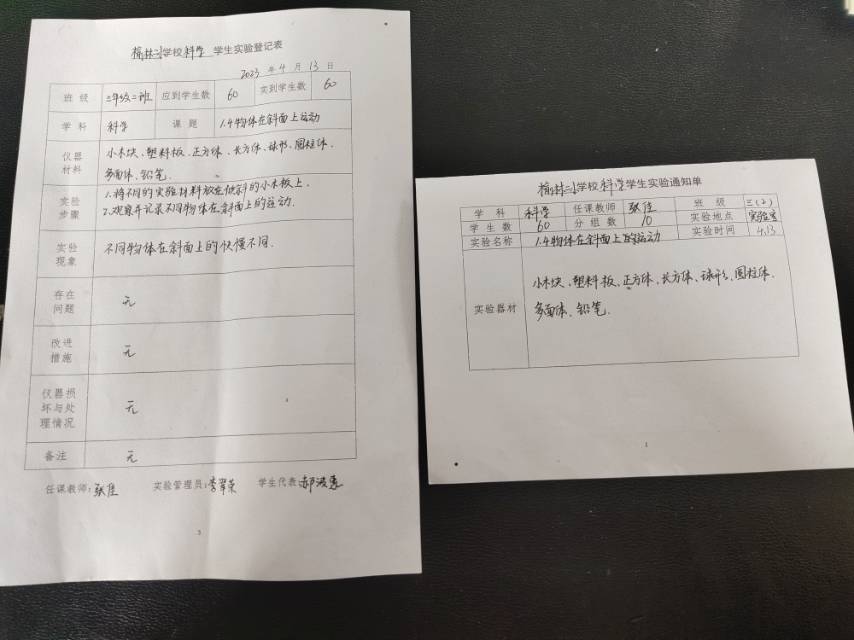 榆林小学校科学 学生实验登记表
2023 年 4 月 13 日
班 级 三年级二班 应到学生数 60 实到学生数 60
学 科 科学 课 题 1.4物体在斜面上运动
仪器材料 小木块、塑料板、正方体、长方体、球形、圆柱体、
多面体、铅笔。
实验步骤 1.将不同的实验材料放在倾斜的小木板上。
2.观察并记录不同物体在斜面上的运动。
实验现象 不同物体在斜面上的快慢不同。
存在问题 无
改进措施 无
仪器损坏与处理情况 无
备注 无
任课教师:张佳 实验管理员:李翠荣 学生代表
3
榆林小学校科学学生实验通知单
学 科 科学 任课教师 张佳 班 级 三(2)
学 生 数 60 分 组 数 10 实验地点 实验室
实验名称 1.4物体在斜面上的运动 实验时间 4.13
实验器材 小木块、塑料板、正方体、长方体、球形、圆柱体、
多面体、铅笔。
1